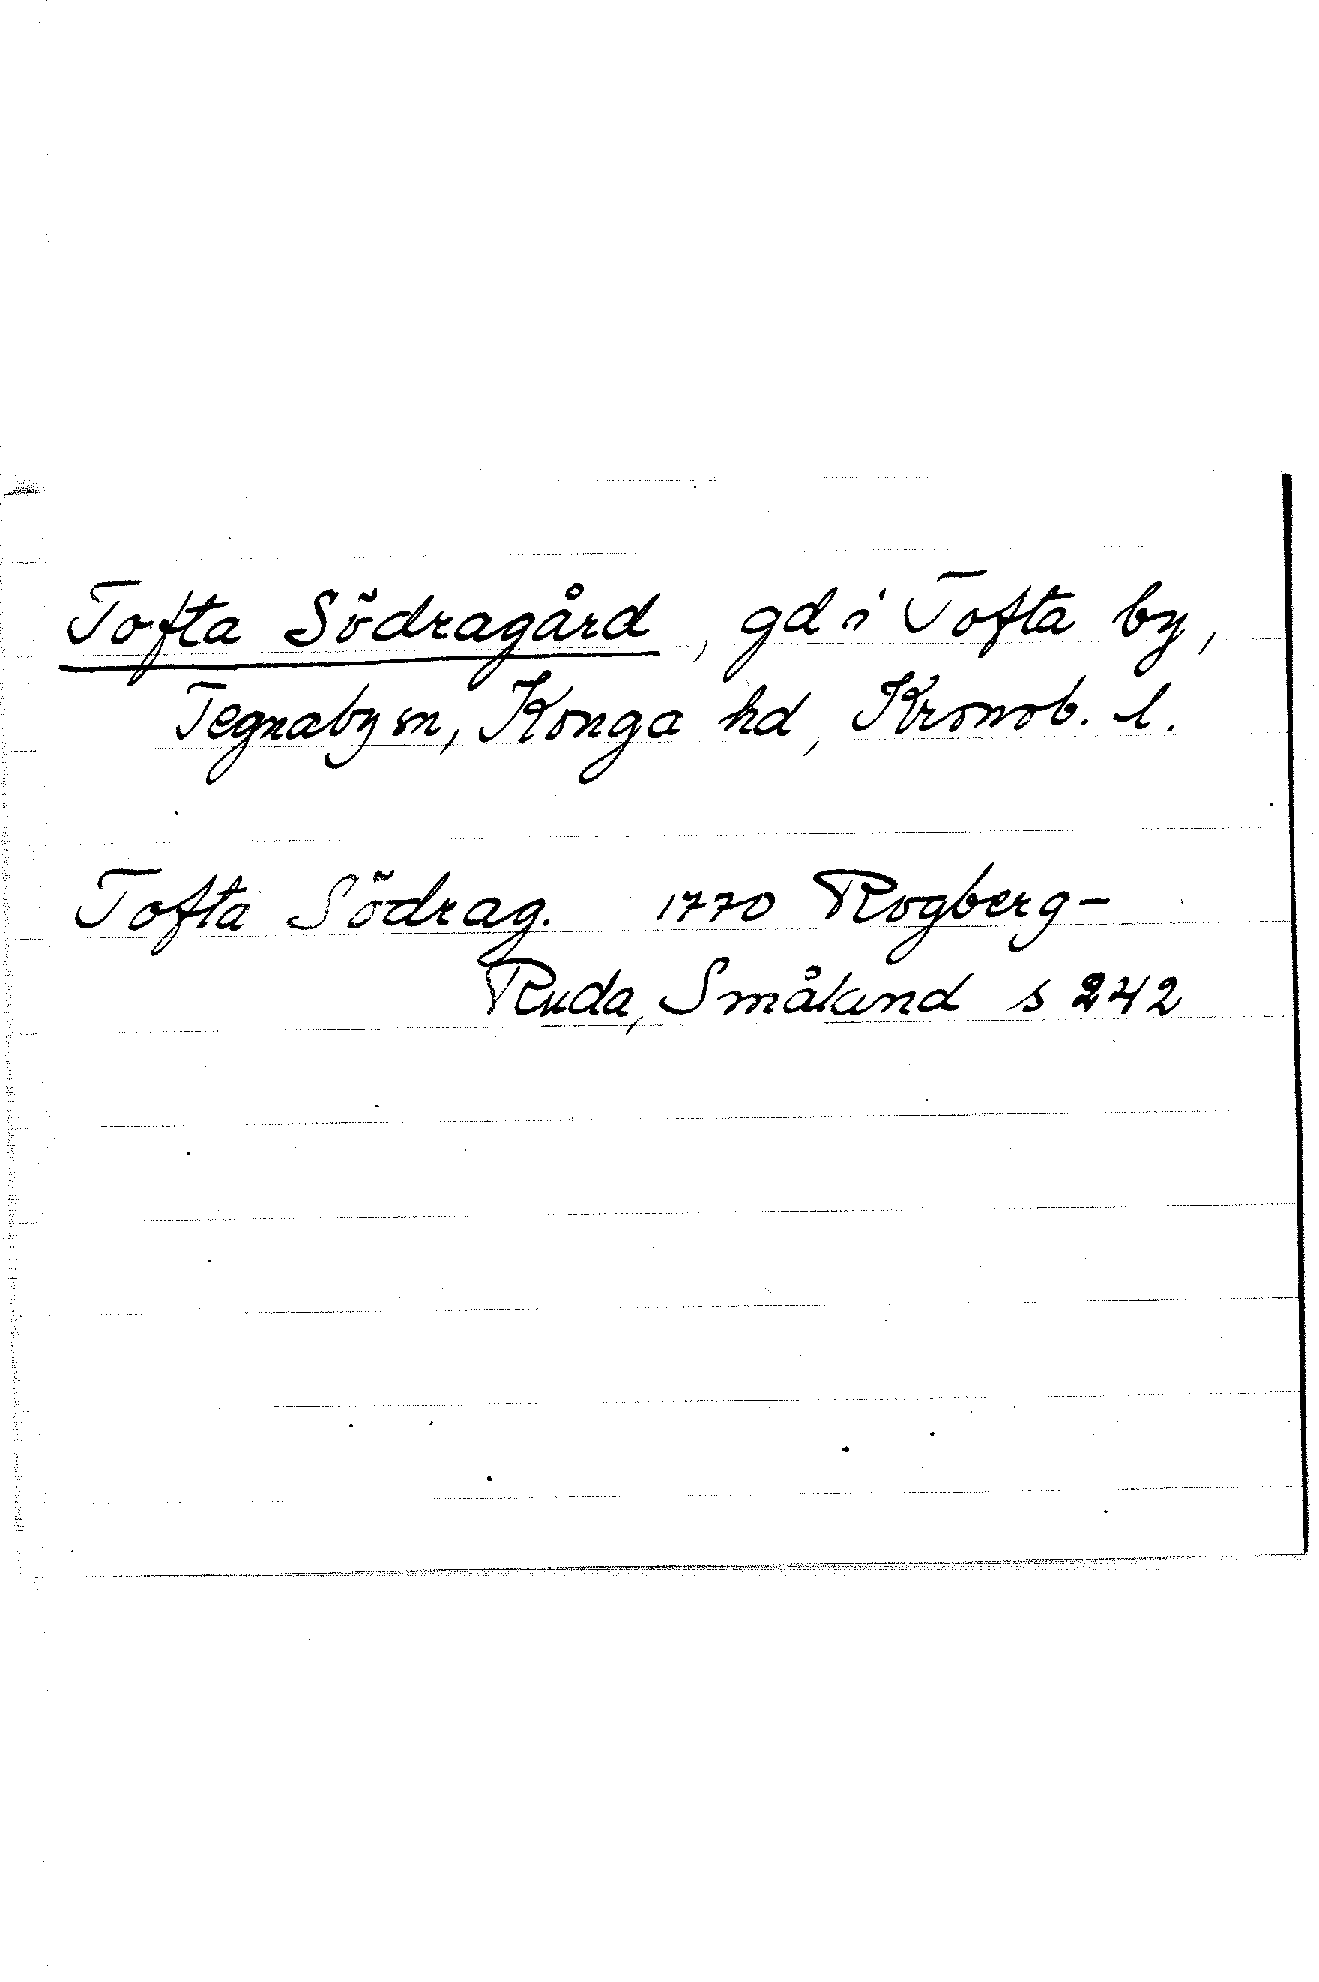 Tofta Södragård, gd i Tofta by,
Tegnaby sn, Konga hd, Kronob. l.
Tofta Södrag. 1770 Rogberg-
Ruda, Småland s 242